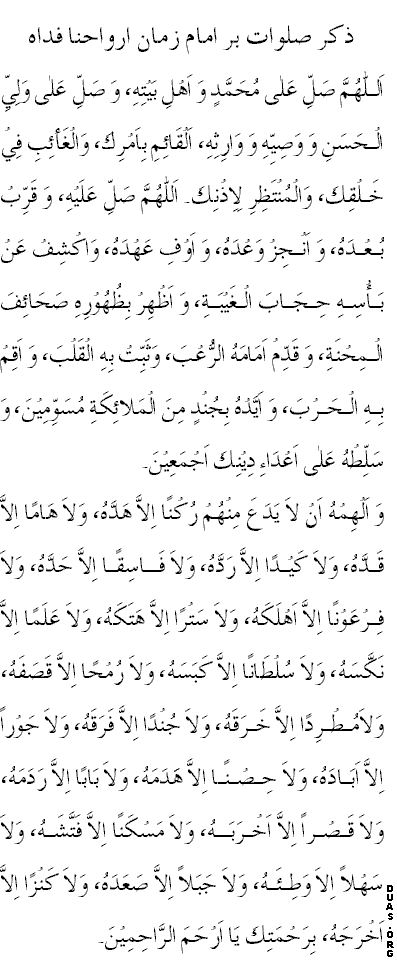 ذكر صلوات بر امام زمان ارواحنا فداه
اَللّٰهُمَّ صَلِّ عَلٰى مُحَمَّدٍ وَ اَهْلِ بَيْتِهِ، وَ صَلِّ عَلٰى وَلِيِّ
الْحَسَنِ وَ وَصِيِّهِ وَ وَارِثِهِ، اَلْقَائِمِ بِاَمْرِكَ، وَالْغَائِبِ فِيْ
خَلْقِكَ، وَالْمُنْتَظِرِ لِاِذْنِكَ۔ اَللّٰهُمَّ صَلِّ عَلَيْهِ، وَ قَرِّبْ
بُعْدَهُ، وَ اَنْجِزْ وَعْدَهُ، وَ اَوْفِ عَهْدَهُ، وَاكْشِفْ عَنْ
بَأْسِهِ حِجَابَ الْغَيْبَةِ، وَ اَظْهِرْ بِظُهُوْرِهِ صَحَائِفَ
الْمِحْنَةِ، وَ قَدِّمْ اَمَامَهُ الرُّعْبَ، وَثَبِّتْ بِهِ الْقَلْبَ، وَ اَقِمْ
بِهِ الْحَرْبَ، وَ اَيِّدْهُ بِجُنْدٍ مِنَ الْمَلائِكَةِ مُسَوِّمِيْنَ، وَ
سَلِّطْهُ عَلٰى اَعْدَاءِ دِيْنِكَ اَجْمَعِيْنَ۔
وَ اَلْهِمْهُ اَنْ لاَ يَدَعَ مِنْهُمْ رُكْنًا اِلاَّ هَدَّهُ، وَلاَ هَامًا اِلاَّ
قَدَّهُ، وَلاَ كَيْدًا اِلاَّ رَدَّهُ، وَلاَ فَاسِقًا اِلاَّ حَدَّهُ، وَلاَ
فِرْعَوْنًا اِلاَّ اَهْلَكَهُ، وَلاَ سَتْرًا اِلاَّ هَتَكَهُ، وَلاَ عَلَمًا اِلاَّ
نَكَّسَهُ، وَلاَ سُلْطَانًا اِلاَّ كَبَسَهُ، وَلاَ رُمْحًا اِلاَّ قَصَفَهُ،
وَلاَمُطْرِدًا اِلاَّ خَرَقَهُ، وَلاَ جُنْدًا اِلاَّ فَرَقَهُ، وَلاَ جَوْراً
اِلاَّ اَبَادَهُ، وَلاَ حِصْنًا اِلاَّ هَدَمَهُ، وَلاَ بَابًا اِلاَّ رَدَمَهُ،
وَلاَ قَصْراً اِلاَّ اَخْرَبَهُ، وَلاَ مَسْكَنًا اِلاَّ فَتَّشَهُ، وَلاَ
سَهْلاً اِلاَ وَطِئَهُ، وَلاَ جَبَلاً اِلاَّ صَعَدَهُ، وَلاَ كَنْزًا اِلاَّ
اَخْرَجَهُ، بِرَحْمَتِكَ يَا اَرْحَمَ الرَّاحِمِيْنَ۔
DUAS.ORG